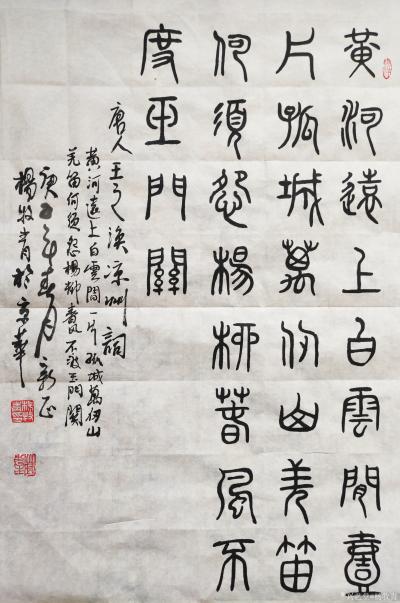 黃河遠上白雲閒壹
片孤城萬仞山羌笛
何須怨楊柳春風不
度玉門關
唐人王之渙涼州詞
黃河遠上白雲間一片孤城萬仞山
羌笛何須怨楊柳春風不渡玉門關
庚年春月新正
楊牧青於京華